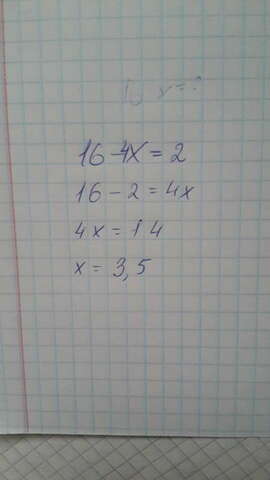 16-4x=2
16-2=4x
4x=14
x=3,5